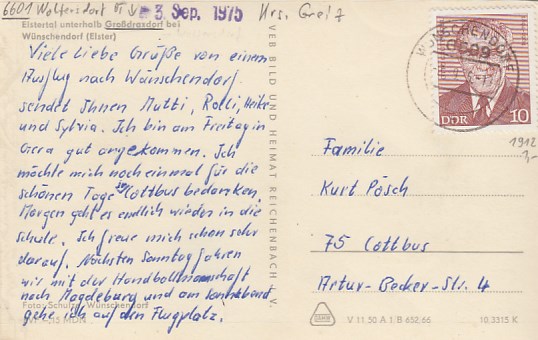 6601 Wolfersdorf üb
3. Sep. 1975
Krs. Greiz
Elstertal unterhalb Großdraxdorf bei
Wünschendorf (Elster)
Viele liebe Grüße von einem
Ausflug nach Wünschendorf
sendet Ihnen Mutti, Rolli, Heike
und Sylvia. Ich bin am Freitag in
Gera gut angekommen. Ich
möchte mich noch einmal für die
schönen Tage in Cottbus bedanken.
Morgen geht es endlich wieder in die
Schule. Ich freue mich schon sehr
darauf. Nächsten Sonntag fahren
wir mit der Handballmannschaft
nach Magdeburg und am Sonnabend
gehe ich auf den Flugplatz.
Foto: Schulze, Wünschendorf
0,15 MDN
VEB BILD UND HEIMAT REICHENBACH I. V.
WÜNSCHENDORF
6509
DDR 10
1912
3,-
Familie
Kurt Pösch
75 Cottbus
Artur-Becker-Str. 4
V 11 50 A 1 B 652/66
10 3315 K